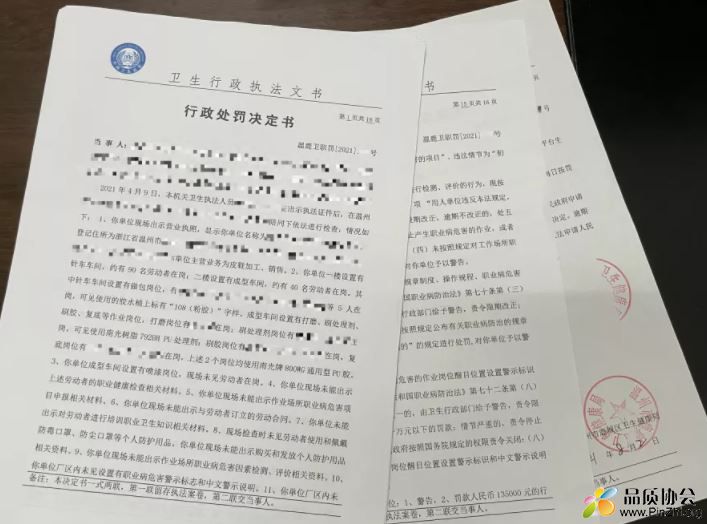 卫生行政执法文书
行政处罚决定书
第1页共16页
温鹿卫职罚[2021] 号
当事人:
2021年4月9日,本机关卫生执法人员 出示执法证件后,在温州
陪同下依法进行检查,情况如
下:1、你单位现场出示营业执照,显示你单位名称为
登记住所为浙江省温州市
单位主营业务为皮鞋加工、销售。2、你单位一楼设置有
针车车间,约有90名劳动者在岗;二楼设置有成型车间,约有40名劳动者在岗,其
中针车车间设置有做包岗位,有 等5人在
岗,可见使用的胶水桶上标有“108(粉胶)”字样。成型车间设置有打磨、刷处理剂、
刷胶、复底等作业岗位,打磨岗位有 在岗;刷处理剂岗位有
岗;可见使用南光树脂 PU处理剂;刷胶岗位有
底岗位有 在岗,上述2个岗位均使用南光牌800MG通用型PU胶。
3、你单位成型车间设有喷漆岗位,现场未见劳动者在岗。4、你单位现场未能出示
上述劳动者的职业健康检查相关材料。5、你单位现场未能出示作业场所职业病危害项
目申报相关材料。6、你单位现场未能出示与劳动者订立的劳动合同。7、你单位未能
出示对劳动者进行培训职业卫生知识相关材料。8、现场检查时未见劳动者使用和佩戴
防毒口罩、防尘口罩等个人防护用品,你单位现场未能出示购买和发放个人防护用品
相关资料。9、你单位现场未能出示作业场所职业病危害因素检测、评价相关资料。10、
你单位厂区内未见设置有职业病危害警示标志和中文警示说明。11、你单位厂区内未
备注:本决定书一式两联,第一联留存执法案卷,第二联交当事人。
书
第15页共16页
温鹿卫职罚[2021]
的项目”,违法情节为“初
行检测、评价的行为,既按
项“用人单位违反本法规定,
限期改正,逾期不改正的,处五
止产生职业病危害的作业,或者
(四)未按照规定对工作场所职
对你单位予以警告。
规章制度、操作规程、职业病危害
国职业病防治法》第七十条第(三)
行政部门给予警告,责令限期改正;
按照规定公布有关职业病防治的规章
的”的规定进行处罚,对你单位予以警
危害的作业岗位醒目位置设置警示标识
和国职业病防治法》第七十二条第(八)
一的,由卫生行政部门给予警告,责令限
万元以下的罚款;情节严重的,责令停止
政府按照国务院规定的权限责令关闭:(八)
岗位醒目位置设置警示标识和中文警示说明
位:1、警告,2、罚款人民币135000元的行
法案卷,第二联交当事人。
第16页共16页
号
平台生
日按罚
政府申请
决定,逾期
法申请人民
卫生健康
市鹿城区卫生健康局
月2日
品质协会
www.PinZhi.org